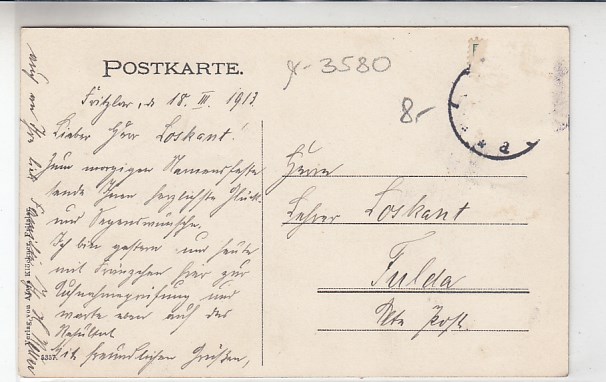 POSTKARTE.
x-3580
8.-
Fritzlar, d. 18. III. 1913
Lieber Herr Loskant!
Zum morgigen Namensfeste
sende Ihnen herzlichste Glück-
und Segenswünsche.
Ich bin gestern und heute
mit Fränzchen hier zur
Aufnahmeprüfung und
warte eben auf das
Resultat
Mit freundlichen Grüßen,
auch an Ihre
Herrn
Lehrer Loskant
Fulda
Alte Post
3357.